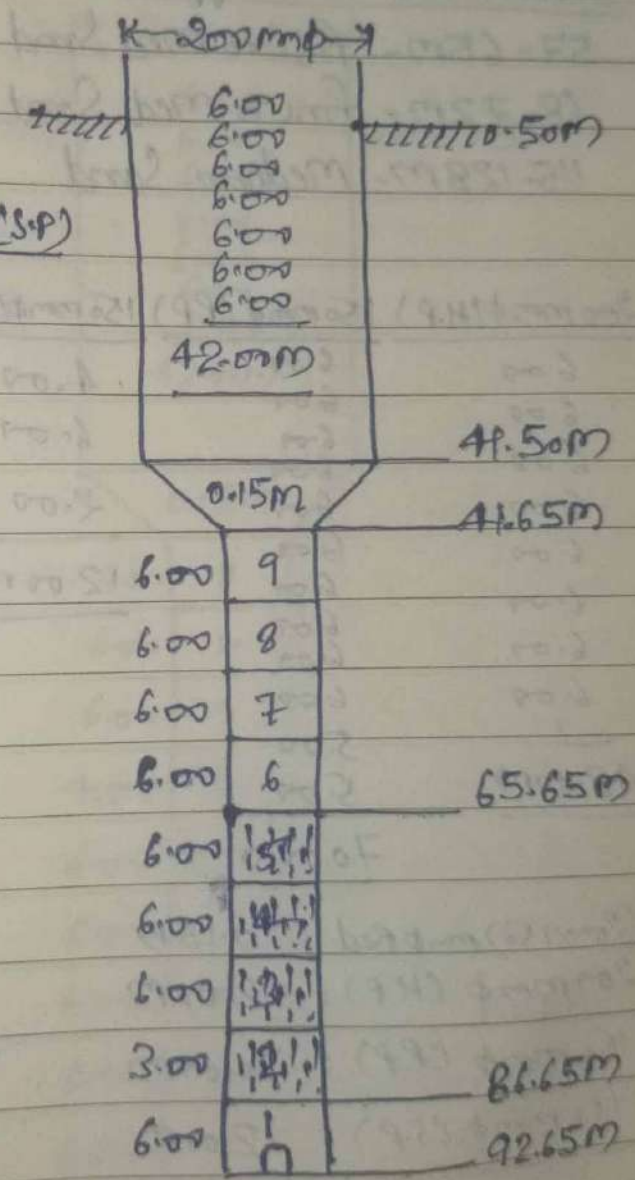 200mmφ
6.00
6.00 0.50m
6.00
6.00
(S.P) 6.00
6.00
6.00
42.00m
41.50m
0.15m
41.65m
6.00 9
6.00 8
6.00 7
6.00 6 65.65m
6.00 5
6.00 4
6.00 3
3.00 2 86.65m
6.00 1 92.65m